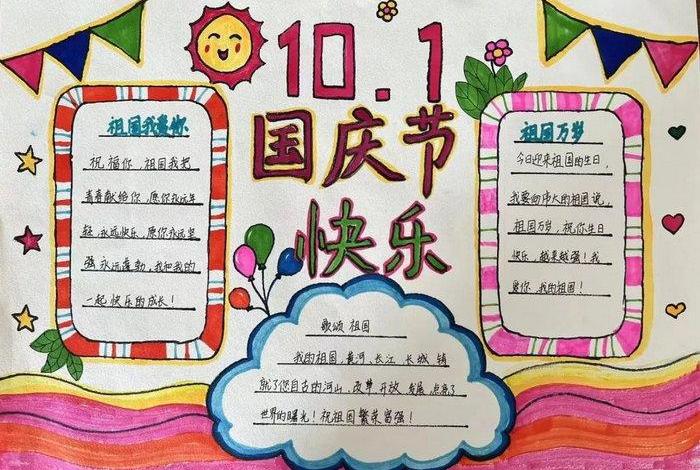 10.1
国庆节
快乐
祖国我爱你
祝福你，祖国我把
青春献给你，愿你永远年
轻，永远快乐，愿你永远坚
强，永远蓬勃，我和我的
一起快乐的成长！
祖国万岁
今日迎来祖国的生日，
我要向伟大的祖国说，
祖国万岁，祝你生日
快乐，越来越强！我
爱你，我的祖国！
歌颂 祖国
我的祖国，黄河、长江 长城 铸
就了您自古的河山，改革 开放 发展 点亮了
世界的曙光！祝祖国繁荣富强！